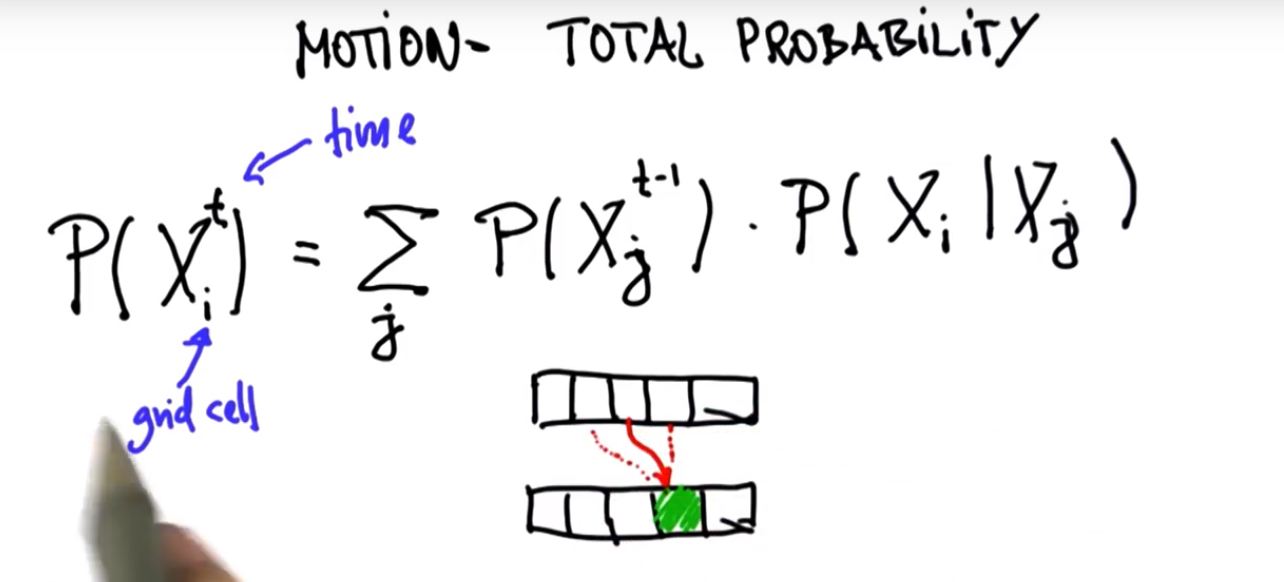 MOTION- TOTAL PROBABILITY
time
P(X_i^t) = Σ_j P(X_j^{t-1}) · P(X_i | X_j)
grid cell